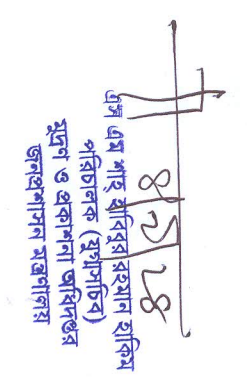 এস এম শাহ্ হাবিবুর রহমান হাকিম
পরিচালক (যুগ্মসচিব)
মুদ্রণ ও প্রকাশনা অধিদপ্তর
জনপ্রশাসন মন্ত্রণালয়